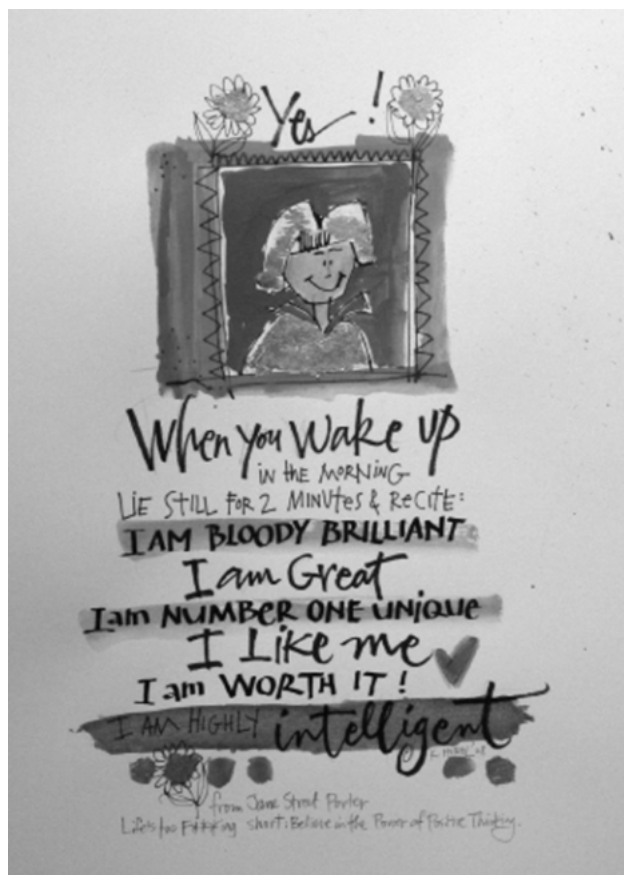 Yes!
When you wake up
in the morning
Lie still for 2 minutes & recite:
I AM BLOODY BRILLIANT
I am Great
I am NUMBER ONE UNIQUE
I Like me
I am WORTH IT!
I AM HIGHLY intelligent
©
from Jane Porter
Life's too short: Believe in the Power of Positive Thinking.